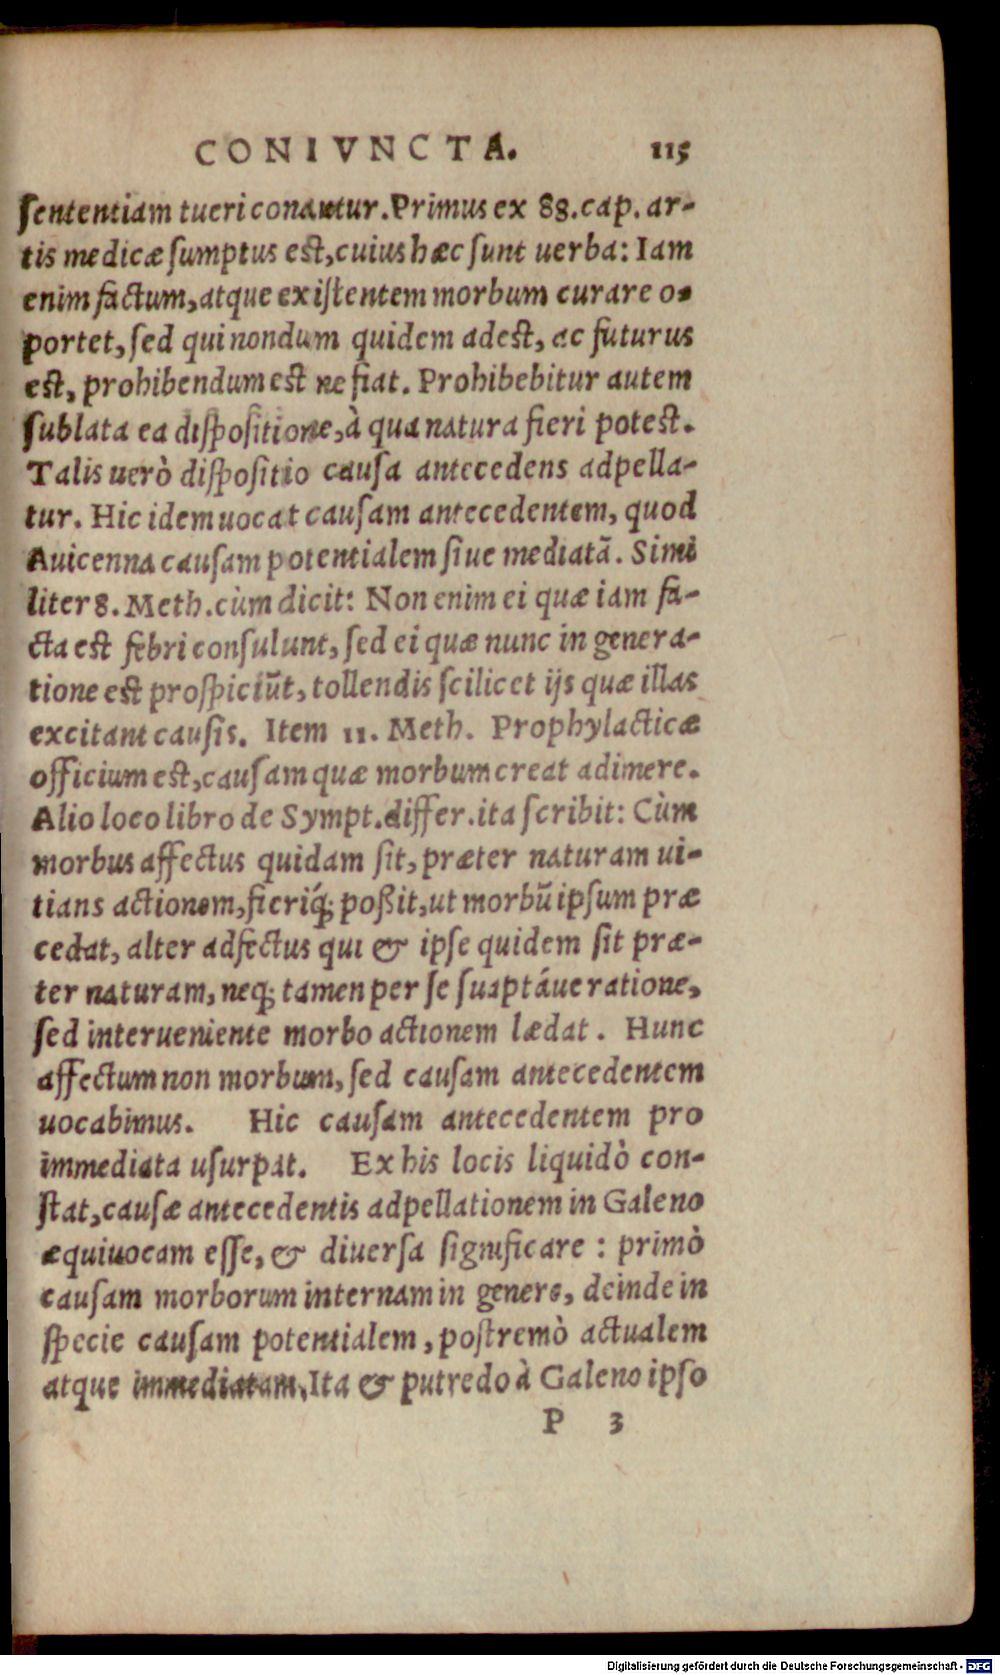 CONIVNCTA. 115
sententiam tueri conantur. Primus ex 88. cap. ar-
tis medicæ sumptus est, cuius hæc sunt uerba: Iam
enim factum, atque existentem morbum curare o-
portet, sed qui nondum quidem adest, ac futurus
est, prohibendum est ne fiat. Prohibebitur autem
sublata ea dispositione, à qua natura fieri potest.
Talis uerò dispositio causa antecedens adpella-
tur. Hic idem uocat causam antecedentem, quod
Auicenna causam potentialem siue mediatã. Simi
liter 8. Meth. cùm dicit: Non enim ei quæ iam fa-
cta est febri consulunt, sed ei quæ nunc in genera-
tione est prospiciũt, tollendis scilicet ijs quæ illas
excitant causis. Item 11. Meth. Prophylacticæ
officium est, causam quæ morbum creat adimere.
Alio loco libro de Sympt. differ. ita scribit: Cùm
morbus affectus quidam sit, præter naturam ui-
tians actionem, fieriq́; poßit, ut morbũ ipsum præ
cedat, alter adfectus qui & ipse quidem sit præ-
ter naturam, neq; tamen per se suaptáue ratione,
sed interueniente morbo actionem lædat. Hunc
affectum non morbum, sed causam antecedentem
uocabimus. Hic causam antecedentem pro
immediata usurpat. Ex his locis liquidò con-
stat, causæ antecedentis adpellationem in Galeno
æquiuocam esse, & diuersa significare: primò
causam morborum internam in genere, deinde in
specie causam potentialem, postremò actualem
atque immediatam. Ita & putredo à Galeno ipso
P 3
Digitalisierung gefördert durch die Deutsche Forschungsgemeinschaft - DFG